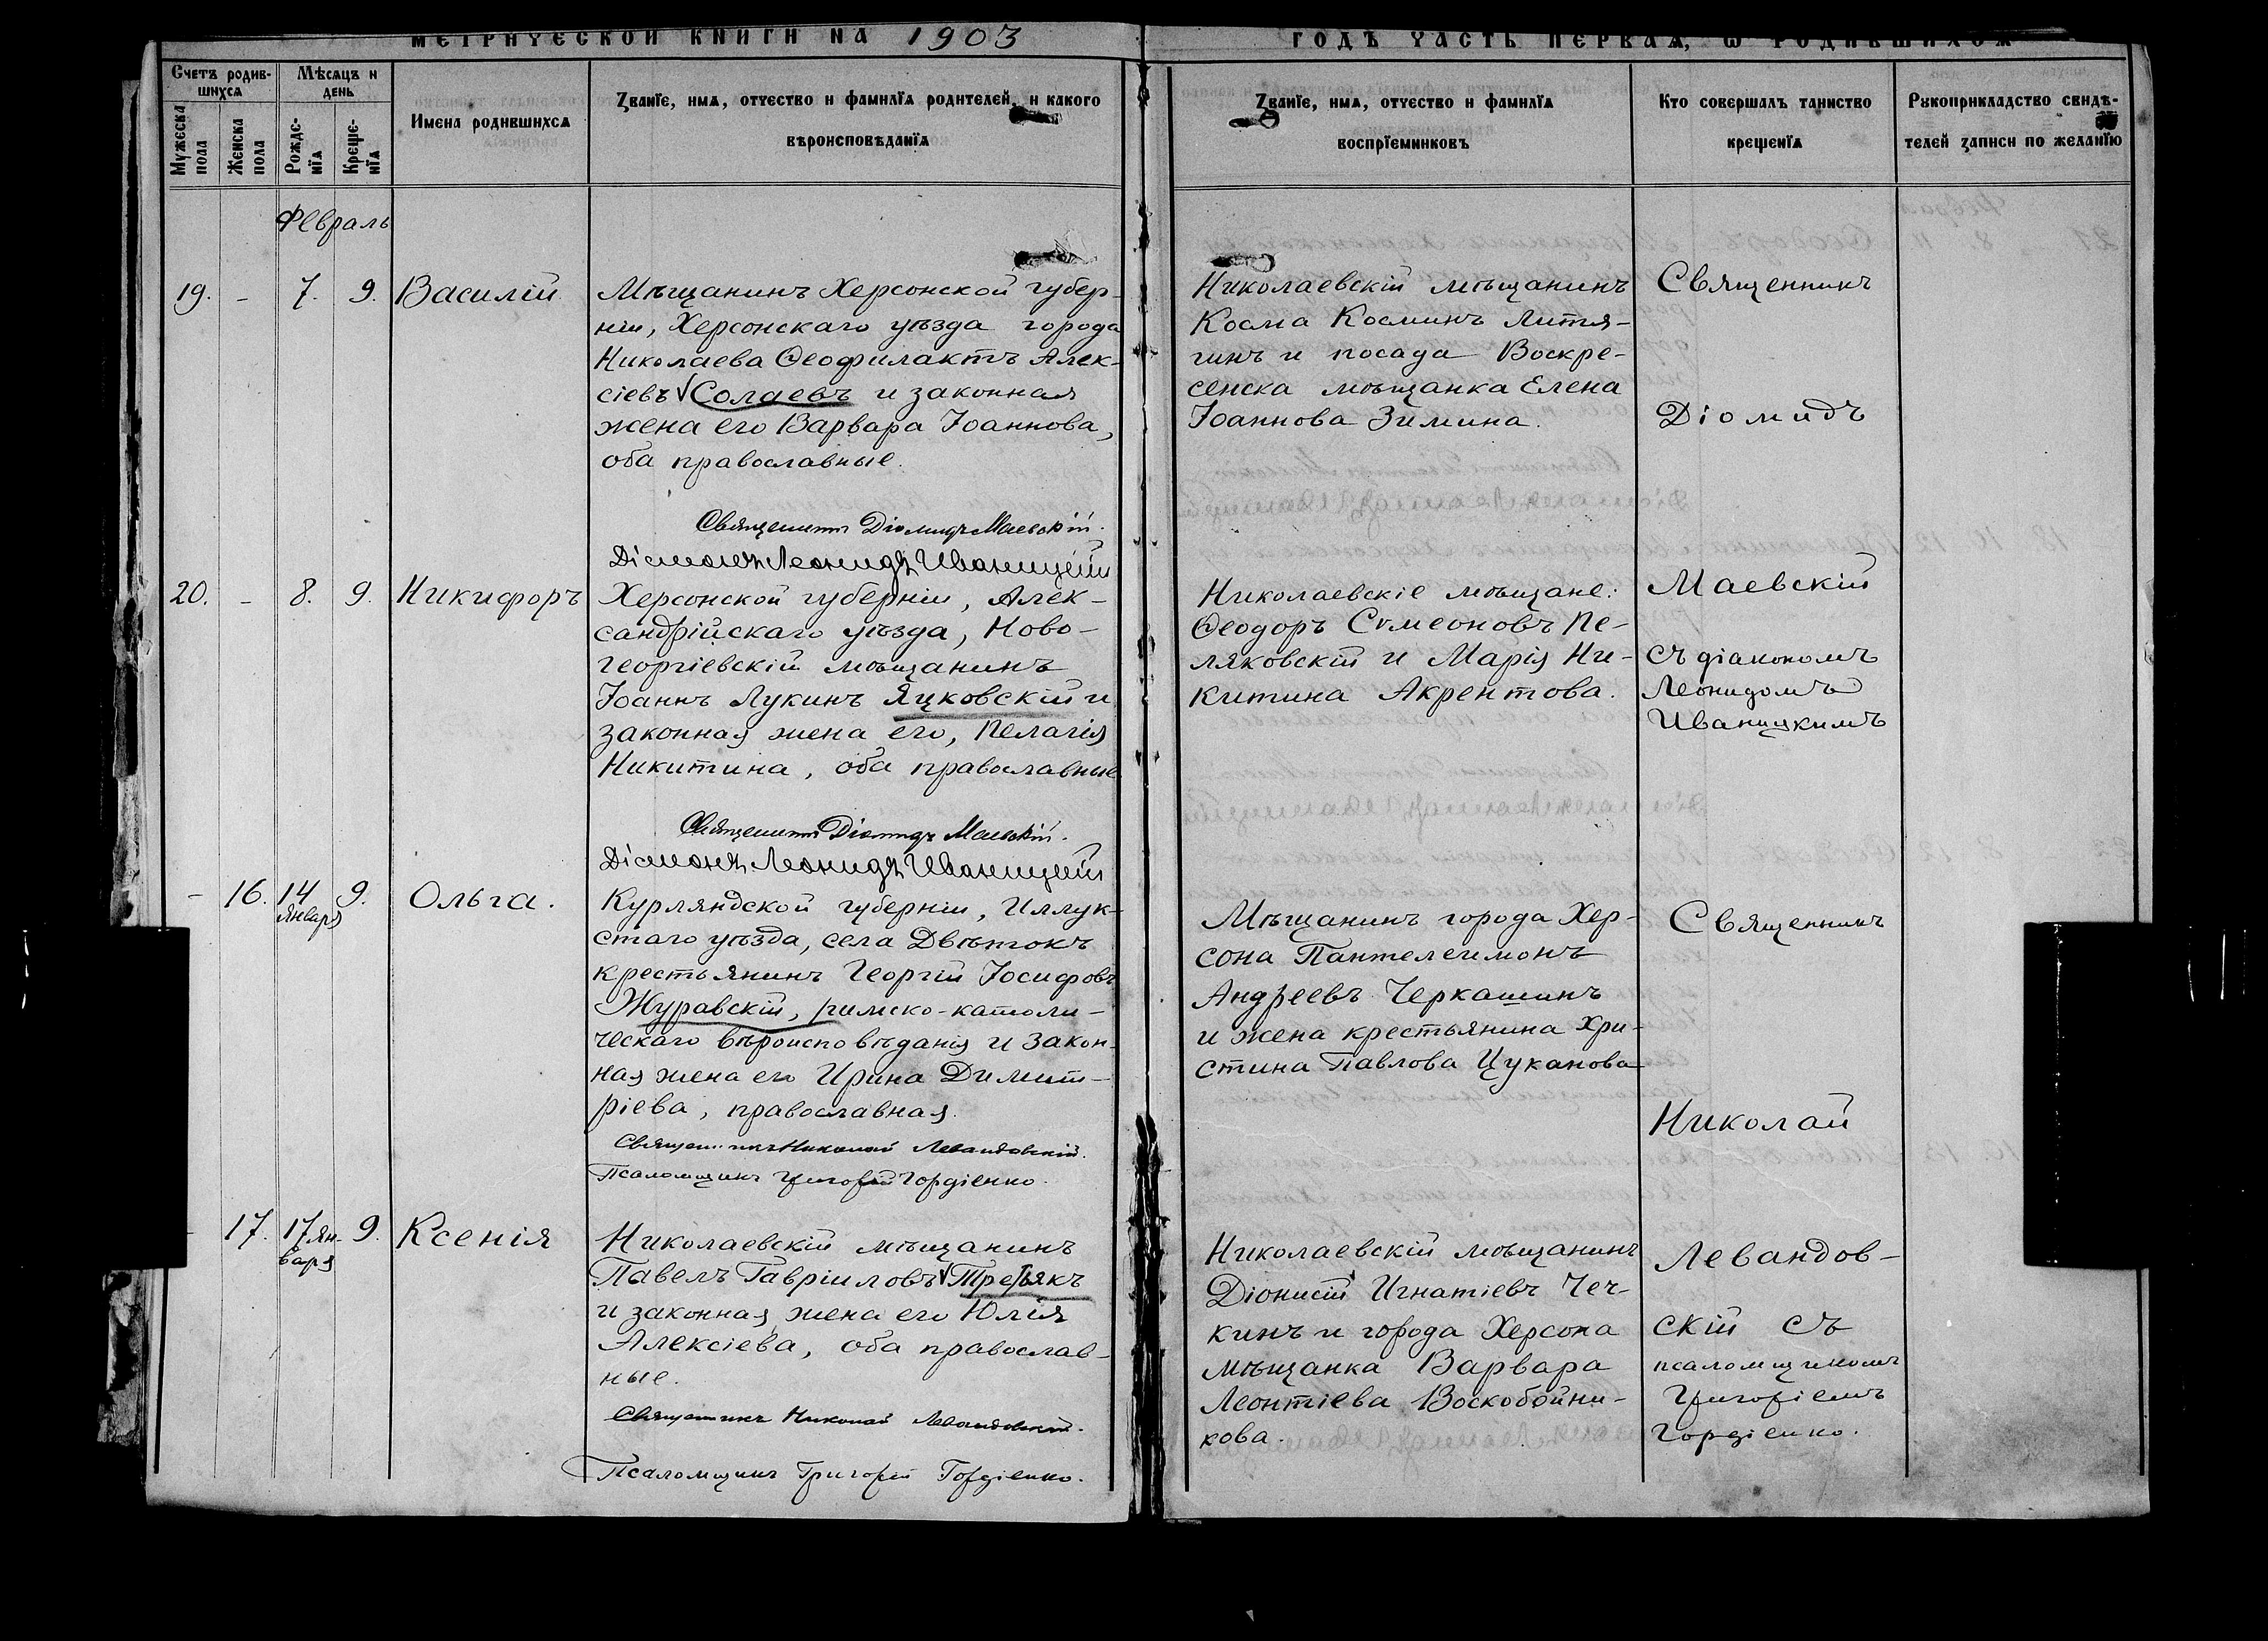 МЕТРИЧЕСКОЙ КНИГИ НА 1903
ГОДЪ ЧАСТЬ ПЕРВАЯ, Ѡ РОДИВШИХСЯ
Счетъ родив-
шихся
Мѣсяцъ и
день
Мужеска
пола
Женска
пола
Рожде-
нїя
Креще-
нїя
Имена родившихся
Званїе, имя, отчество и фамилїя родителей, и какого
вѣроисповѣданїя
Званїе, имя, отчество и фамилїя
воспрїемниковъ
Кто совершалъ таинство
крещенїя
Рукоприкладство свидѣ-
телей записи по желанїю
Февраль
19. - 7. 9. Василій
Мѣщанинъ Херсонской губер-
ніи, Херсонскаго уѣзда города
Николаева Ѳеофилактъ Алек-
сіевъ Солаевъ и законная
жена его Варвара Іоаннова,
оба православные.
Священникъ Діомидъ Маевскій.
Діаконъ Леонидъ Иваницкій
Николаевскій мѣщанинъ
Косма Косминъ Литя-
гинъ и посада Воскре-
сенска мѣщанка Елена
Іоаннова Зимина.
Священникъ
Діомидъ
20. - 8. 9. Никифоръ
Херсонской губерніи, Алек-
сандрійскаго уѣзда, Ново-
георгіевскій мѣщанинъ
Іоаннъ Лукинъ Яцковскій и
законная жена его, Пелагія
Никитина, оба православные
Священникъ Діомидъ Маевскій.
Діаконъ Леонидъ Иваницкій
Николаевскіе мѣщане:
Ѳеодоръ Сѵмеоновъ Пе-
ляковскій и Марія Ни-
китина Акрентова.
Маевскій
съ діакономъ
Леонидомъ
Иваницкимъ
- 16. 14 января 9. Ольга.
Курляндской губерніи, Иллук-
стаго уѣзда, села Двѣтокъ
крестьянинъ Георгій Іосифовъ
Журавскій, римско-католи-
ческаго вѣроисповѣданія и закон-
ная жена его Ирина Димит-
ріева, православная.
Священникъ Николай Левандовскій.
Псаломщикъ Григорій Гордіенко.
Мѣщанинъ города Хер-
сона Пантелеимонъ
Андреевъ Черкашинъ
и жена крестьянина Хри-
стина Павлова Цуканова
Священникъ
Николай
- 17. 17 ян-
варя 9. Ксенія
Николаевскій мѣщанинъ
Павелъ Гавріиловъ Третьякъ
и законная жена его Юлія
Алексіева, оба православ-
ные.
Священникъ Николай Левандовскій.
Псаломщикъ Григорій Гордіенко.
Николаевскій мѣщанинъ
Діонисій Игнатіевъ Чеч-
кинъ и города Херсона
мѣщанка Варвара
Леонтіева Воскобойни-
кова.
Левандов-
скій съ
псаломщикомъ
Григоріемъ
Гордіенко.